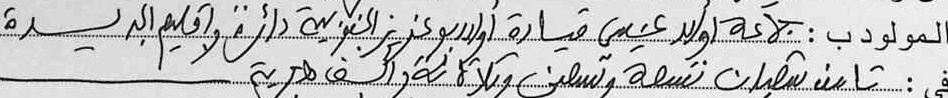 المولود ب : جماعة أولاد عيسى قيادة أولاد بوعزيز الجنوبية دائرة واقليم الجديدة
في : ثامن شعبان تسعة وتسعين وثلاثمائة وألف هجرية